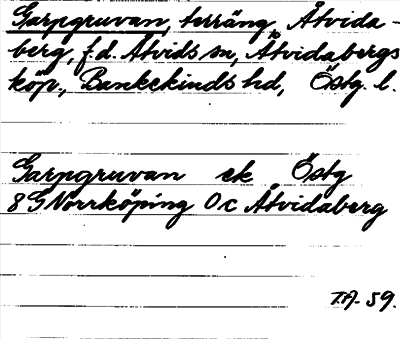 Garpgruvan, terräng, Åtvida-
berg, f.d. Åtvids sn, Åtvidabergs
köp., Bankekinds hd, Östg. l.
Garpgruvan ek Östg
8G Norrköping 0c Åtvidaberg
T.A. 59.